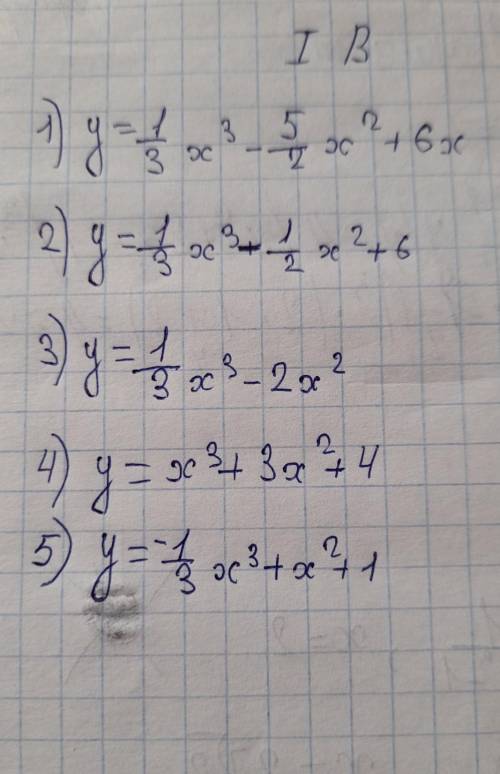 I B
1) y = 1/3 x³ - 5/2 x² + 6x
2) y = 1/3 x³ - 1/2 x² + 6
3) y = 1/3 x³ - 2x²
4) y = x³ + 3x² + 4
5) y = -1/3 x³ + x² + 1